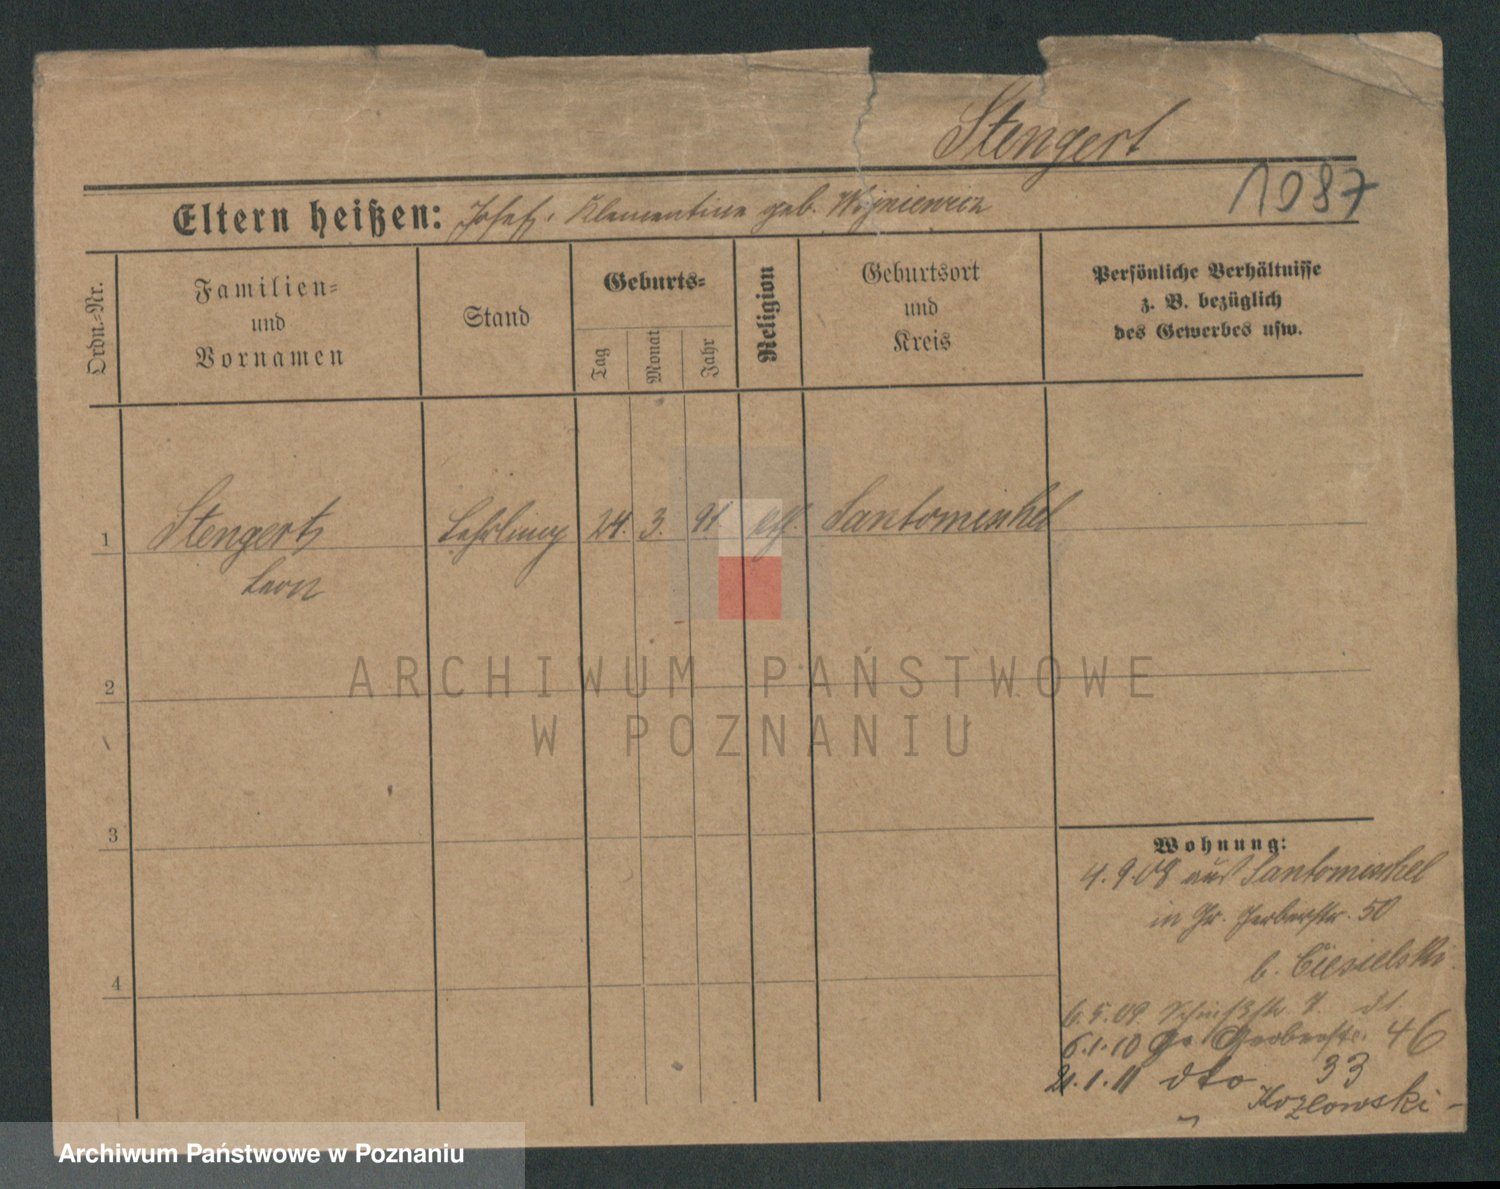 Stengert
1087
Eltern heißen: Josef, Klementine geb. Wojniewicz
Ordn.-Nr.
Familien-
und
Vornamen
Stand
Geburts-
Tag
Monat
Jahr
Religion
Geburtsort
und
Kreis
Persönliche Verhältnisse
z. B. bezüglich
des Gewerbes usw.
1 Stengert Lehrling 24. 3. 91. Santomischel
Leon
2
3
4
Wohnung:
4.9.08 aus Santomischel
in Gr. Gerberstr. 50
b. Ciesielski
6.5.09
6.1.10 Gr. Gerberstr. 46
21.1.11 dto 33
Kozlowski
ARCHIWUM PAŃSTWOWE
W POZNANIU
Archiwum Państwowe w Poznaniu